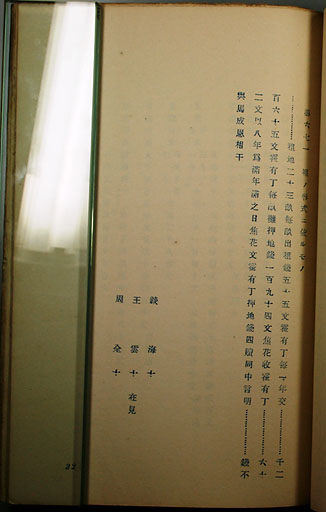 …………種地二十三畝每畝出租錢五十五文霍有丁每一年交……………千二
百六十五文霍有丁每畝攤押地錢一百九十四文焦花收霍有丁……………六十
二文以八年爲滿年滿之日焦花文霍有丁押地錢四頭同中言明……………錢不
與馬成恩相干
談海十
王雲十在見
周全十
32